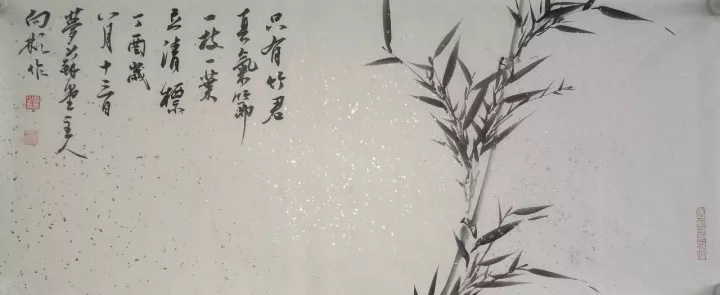 只有竹君
真氣節
一枝一葉
立清標
丁酉歲
八月十三日
夢
堂主人
向彬作